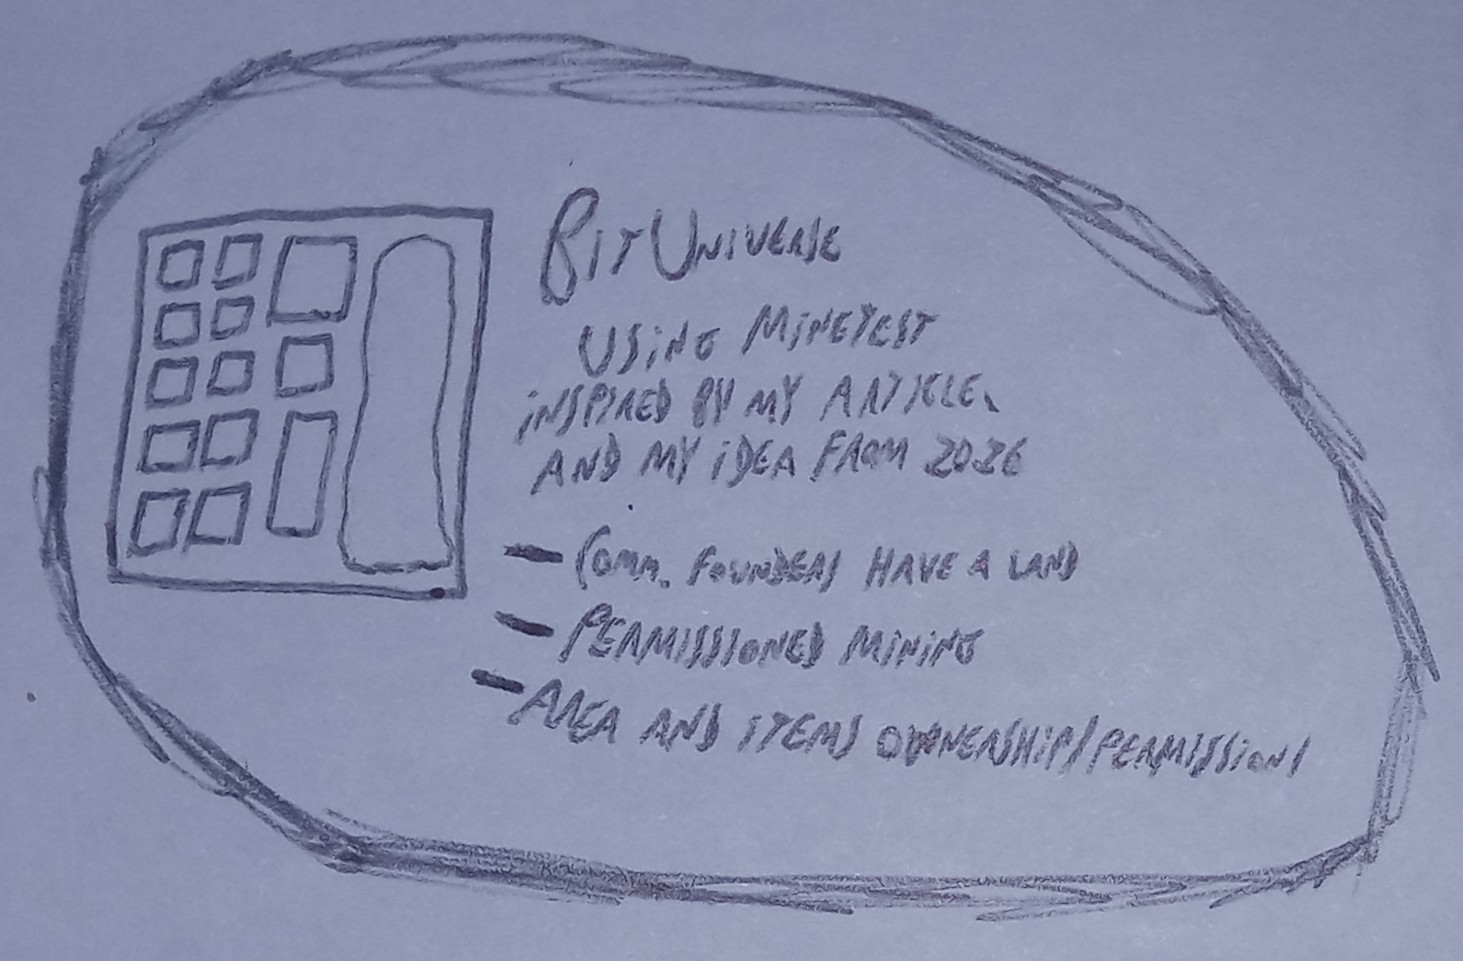 BitUniverse
USiNG MiNETEST
iNSPIRED BY MY ARTICLE.
AND MY iDEA FROM 2026
- COMM. FOUNDERS HAVE A LAND
- PERMISSIONED MiNiNG
- AREA AND iTEMS OWNERSHiP/PERMISSiONS